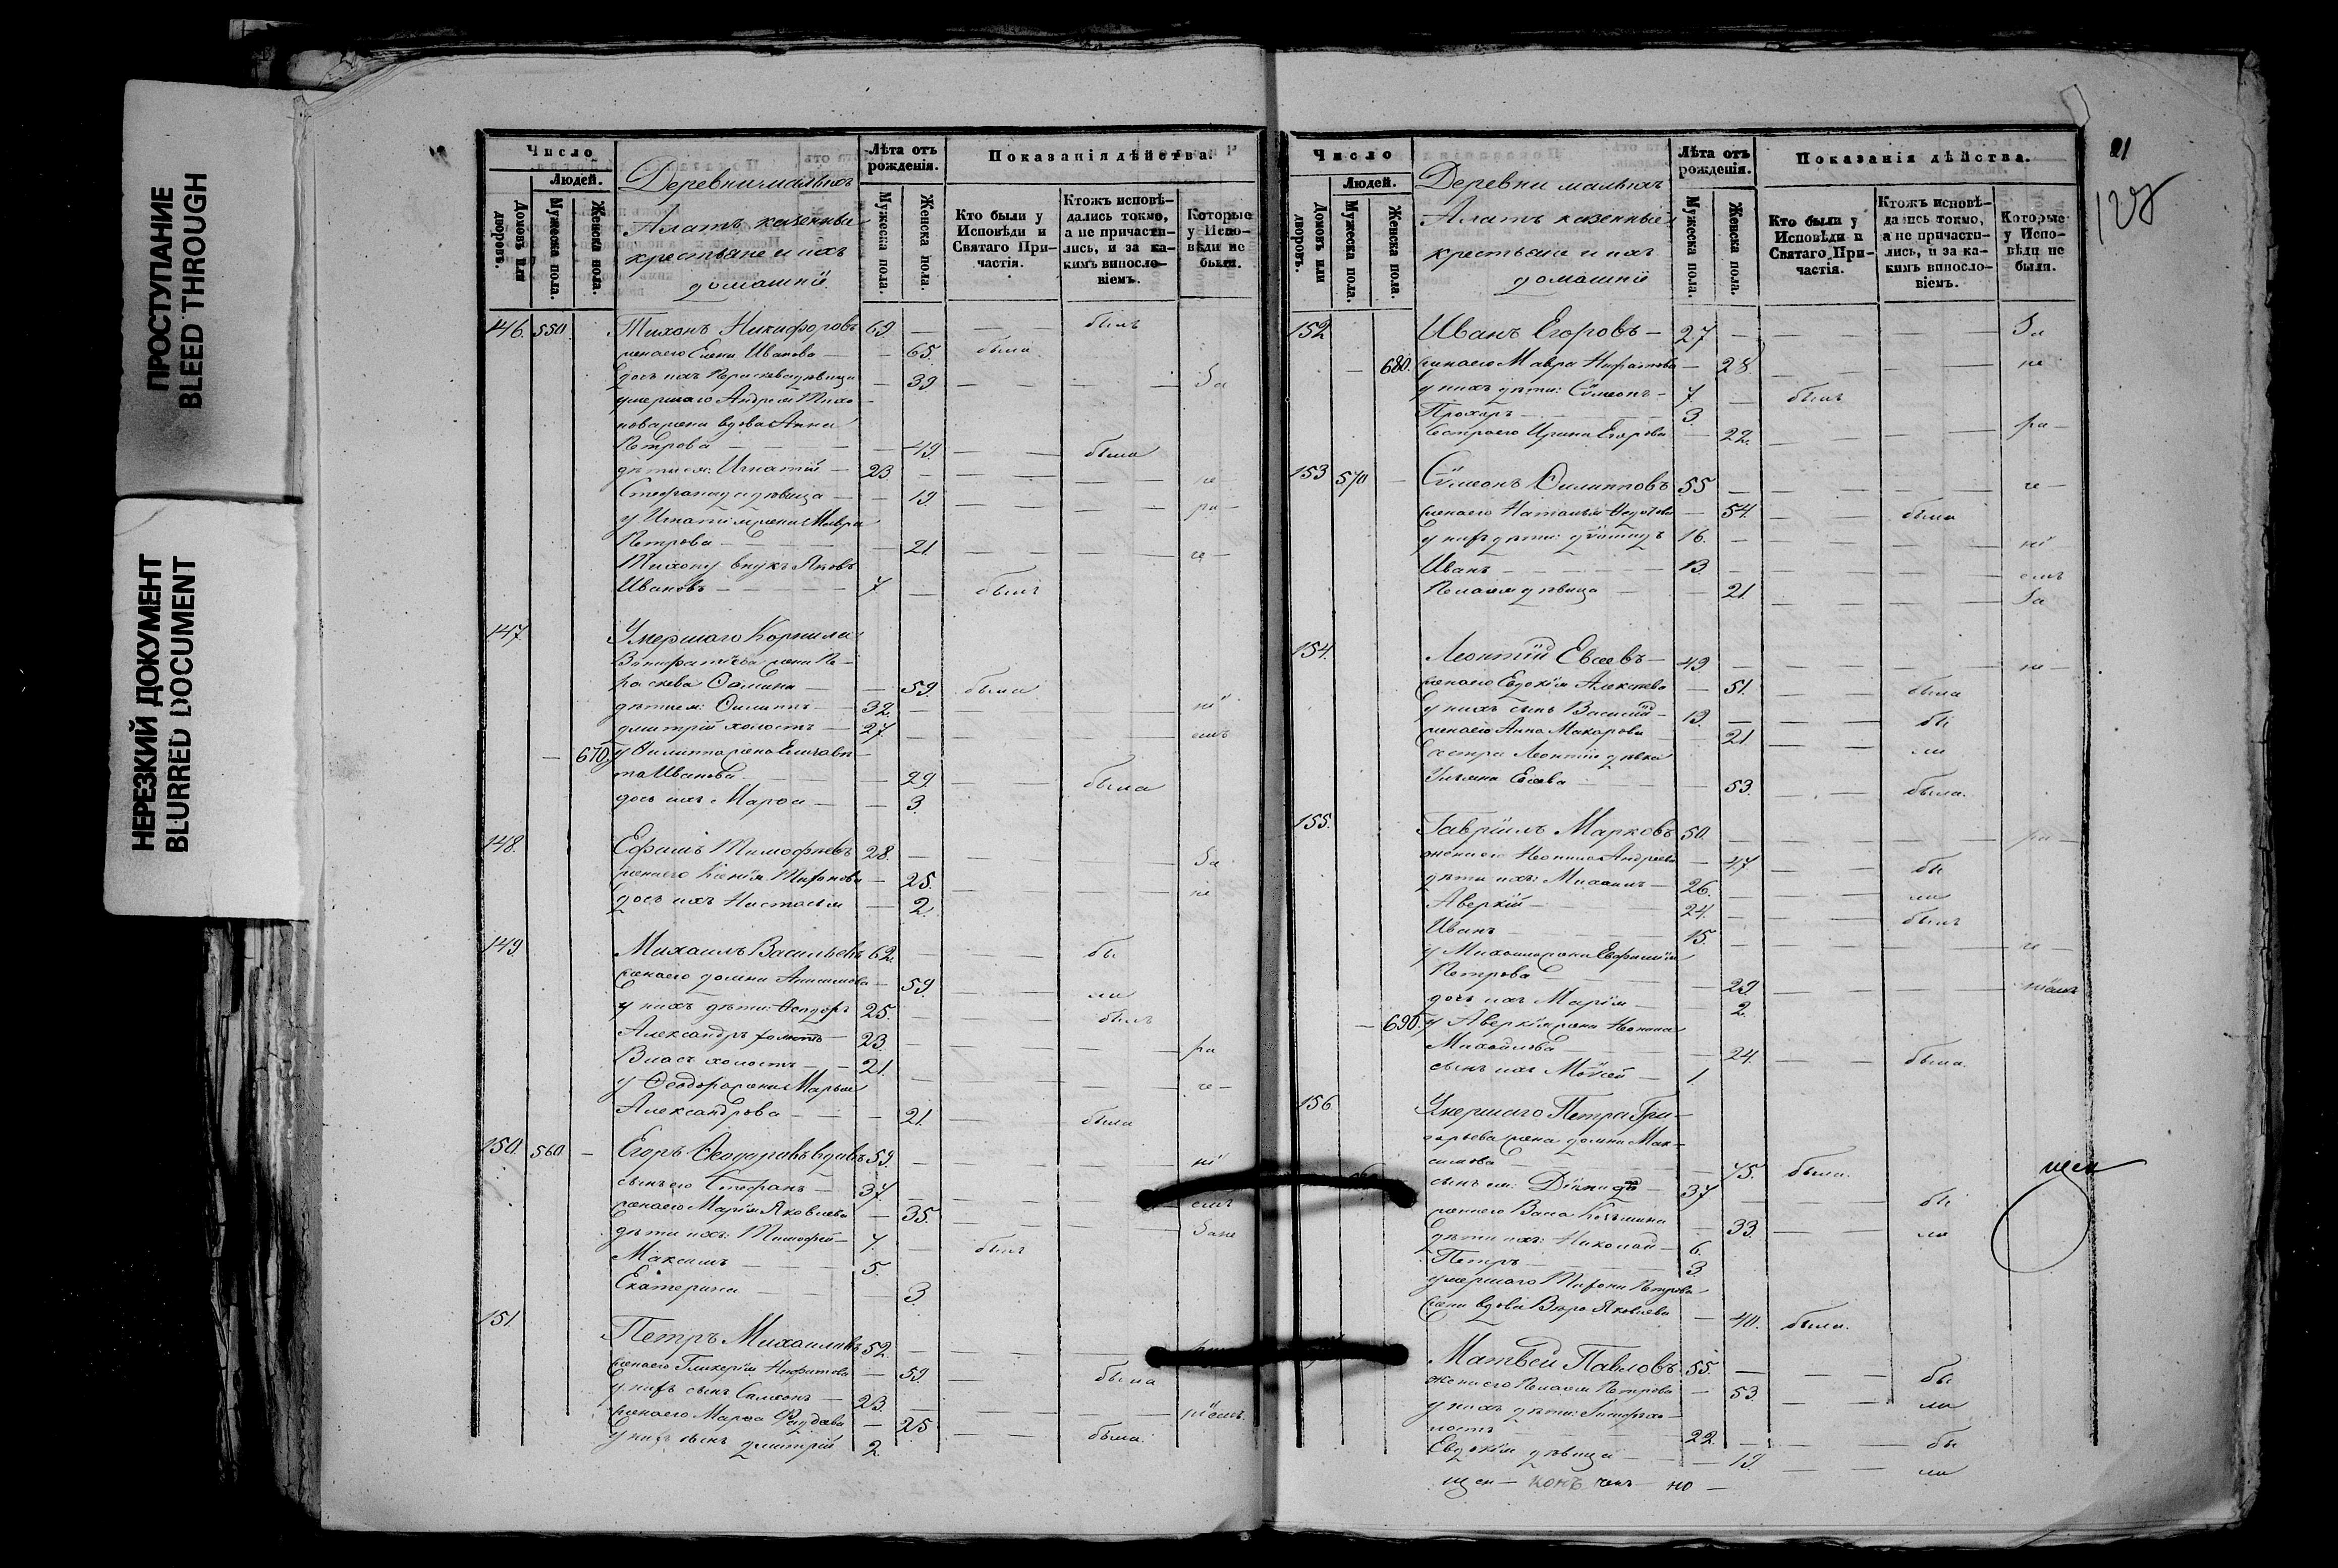 ПРОСТУПАНИЕ
BLEED THROUGH
НЕРЕЗКИЙ ДОКУМЕНТ
BLURRED DOCUMENT
Число
Людей.
Домовъ или дворовъ.
Мужеска пола.
Женска пола.
Деревни малыхъ
Алатъ казенныи
крестьяне и ихъ
домашніи
Лѣта отъ рожденія.
Мужеска пола.
Женска пола.
Показанія дѣйства.
Кто были у Исповѣди и Святаго Причастія.
Ктожъ исповѣдались токмо, а не причастились, и за какимъ винословіемъ.
Которые у Исповѣди не были.
146. 550 Тихонъ Никифоровъ 69. былъ
жена его Елена Иванова 65. была
дочь ихъ Параскева девица 39 За
умершаго Андрея Тихо-
нова жена вдова Анна
Петрова 49. была
дѣти ея: Игнатій 23 не
Стефанида девица 19. ра
у Игнатія жена Мавра
Петрова 21. че
Тихону внукъ Яковъ
Ивановъ 7 былъ
147 Умершаго Корнила
жена Па-
раскева Ѳомина 59. была
дѣти ея: Филиппъ 32. ні
Дмитрій холостъ 27 емъ
670. у Филиппа жена Елисаве-
та Иванова 29 была
дочь ихъ Марѳа 3.
148. Ефимъ Тимофеевъ 28. За
жена его Ксенія Тихонова 25. не
дочь ихъ Настасья 2.
149. Михаилъ Васильевъ 62. бы
жена его Домна Анисимова 59. ли
у нихъ дѣти: Ѳеодоръ 25. былъ
Александръ холостъ 23. ра
Власъ холостъ 21. че
у Ѳеодора жена Марья
Александрова 21. была
150. 560 Егоръ Ѳеодоровъ вдовъ 59. ні
сынъ его Стефанъ 37. емъ
жена его Марія Яковлева 35. Зане
дѣти ихъ: Тимофей 7. былъ
Максимъ 5.
Екатерина 3.
151. Петръ Михаиловъ 52.
жена его Гликерія 59. была
у нихъ сынъ Самсонъ 23. ріемъ
жена его Марѳа 25
у нихъ сынъ Дмитрій 2. была
21
128
Число
Людей.
Домовъ или дворовъ.
Мужеска пола.
Женска пола.
Деревни малыхъ
Алатъ казенныи
крестьяне и ихъ
домашніи
Лѣта отъ рожденія.
Мужеска пола.
Женска пола.
Показанія дѣйства.
Кто были у Исповѣди и Святаго Причастія.
Ктожъ исповѣдались токмо, а не причастились, и за какимъ винословіемъ.
Которые у Исповѣди не были.
152 Иванъ Егоровъ 27 За
680. жена его Мавра 28. не
у нихъ дѣти: Сѵмеонъ 7. былъ
Прохоръ 3.
сестра его Ирина Егорова 22. ра
153 570 Сѵмеонъ Филипповъ 55 че
жена его Наталья Ѳедотова 54. была
у нихъ дѣти: 16. ні
Иванъ 13. емъ
Пелагея девица 21. За
154. Леонтій Евсеевъ 49. не
жена его Евдокія Алексеева 51. была
у нихъ сынъ Василій 19. бы
жена его Анна Макарова 21 ли
сестра Леонтія девка
Ульяна Евсеева 53. была.
155. Гавріилъ Марковъ 50. ра
жена его Неонила Андреева 47 бы
дѣти ихъ: Михаилъ 26. ли
Аверкій 24. былъ
Иванъ 15. че
у Михаила жена Евфимія
Петрова 29 ніемъ
дочь ихъ Марія 2.
690. у Аверкія жена Неонила
Михайлова 24. была.
сынъ ихъ Моѵсей 1.
156 Умершаго Петра Гри-
горьева жена Домна Мак-
симова 75. была.
сынъ ея: 37 бы
жена его Васса Козьмина 33. ли
дѣти ихъ: Николай 6.
Петръ 3.
умершаго Тихона Петрова
жена вдова Вера Яковлева 40. была.
Матвей Павловъ 55. бы
жена его Пелагея Петрова 53. ли
у нихъ дѣти: хо-
лостъ 22. бы
Евдокія девица 19. ли